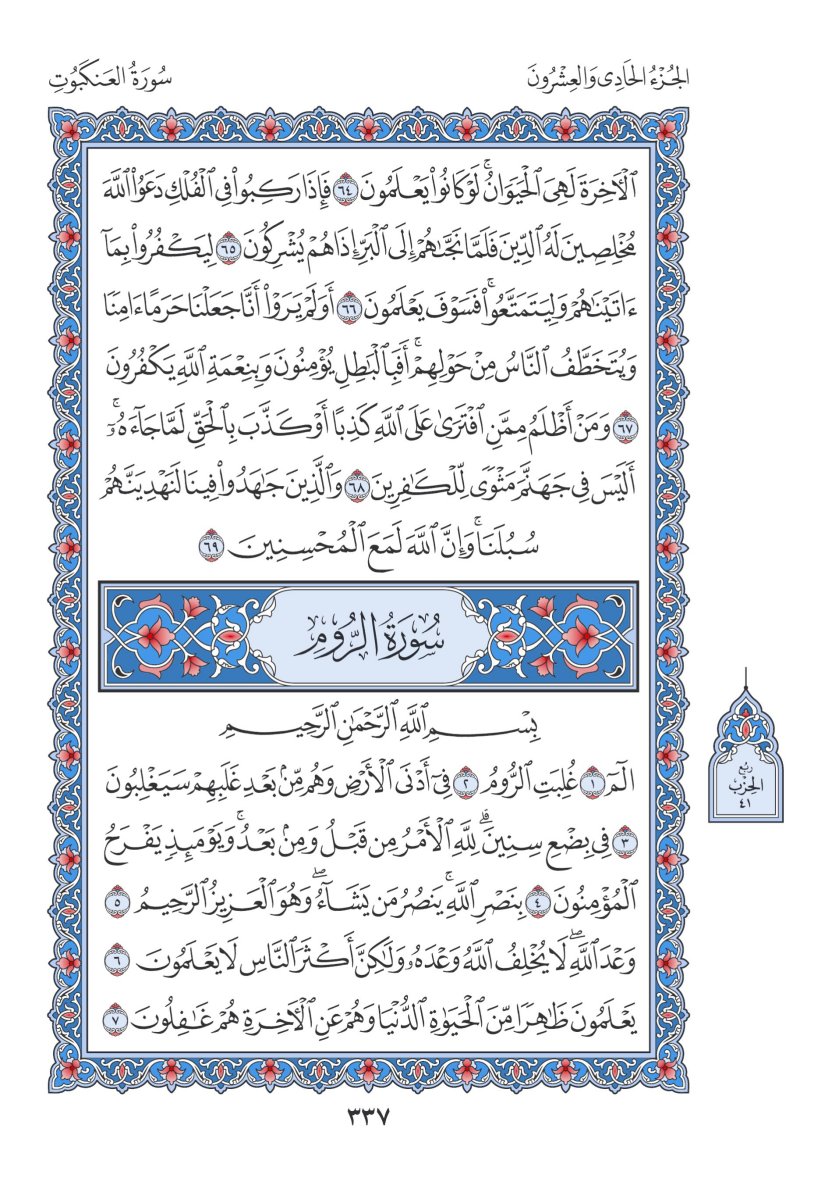 الجُزْءُ الحَادِى وَالعِشْرُونَ
سُورَةُ العَنكَبُوتِ
ٱلۡأٓخِرَةَ لَهِيَ ٱلۡحَيَوَانُۚ لَوۡ كَانُواْ يَعۡلَمُونَ ٦٤ فَإِذَا رَكِبُواْ فِي ٱلۡفُلۡكِ دَعَوُاْ ٱللَّهَ
مُخۡلِصِينَ لَهُ ٱلدِّينَ فَلَمَّا نَجَّىٰهُمۡ إِلَى ٱلۡبَرِّ إِذَا هُمۡ يُشۡرِكُونَ ٦٥ لِيَكۡفُرُواْ بِمَآ
ءَاتَيۡنَٰهُمۡ وَلِيَتَمَتَّعُواْۚ فَسَوۡفَ يَعۡلَمُونَ ٦٦ أَوَلَمۡ يَرَوۡاْ أَنَّا جَعَلۡنَا حَرَمًا ءَامِنٗا
وَيُتَخَطَّفُ ٱلنَّاسُ مِنۡ حَوۡلِهِمۡۚ أَفَبِٱلۡبَٰطِلِ يُؤۡمِنُونَ وَبِنِعۡمَةِ ٱللَّهِ يَكۡفُرُونَ
٦٧ وَمَنۡ أَظۡلَمُ مِمَّنِ ٱفۡتَرَىٰ عَلَى ٱللَّهِ كَذِبًا أَوۡ كَذَّبَ بِٱلۡحَقِّ لَمَّا جَآءَهُۥٓۚ
أَلَيۡسَ فِي جَهَنَّمَ مَثۡوٗى لِّلۡكَٰفِرِينَ ٦٨ وَٱلَّذِينَ جَٰهَدُواْ فِينَا لَنَهۡدِيَنَّهُمۡ
سُبُلَنَاۚ وَإِنَّ ٱللَّهَ لَمَعَ ٱلۡمُحۡسِنِينَ ٦٩
سُورَةُ الرُّومِ
بِسۡمِ ٱللَّهِ ٱلرَّحۡمَٰنِ ٱلرَّحِيمِ
الٓمٓ ١ غُلِبَتِ ٱلرُّومُ ٢ فِيٓ أَدۡنَى ٱلۡأَرۡضِ وَهُم مِّنۢ بَعۡدِ غَلَبِهِمۡ سَيَغۡلِبُونَ
٣ فِي بِضۡعِ سِنِينَۗ لِلَّهِ ٱلۡأَمۡرُ مِن قَبۡلُ وَمِنۢ بَعۡدُۚ وَيَوۡمَئِذٖ يَفۡرَحُ
ٱلۡمُؤۡمِنُونَ ٤ بِنَصۡرِ ٱللَّهِۚ يَنصُرُ مَن يَشَآءُۖ وَهُوَ ٱلۡعَزِيزُ ٱلرَّحِيمُ ٥
وَعۡدَ ٱللَّهِۖ لَا يُخۡلِفُ ٱللَّهُ وَعۡدَهُۥ وَلَٰكِنَّ أَكۡثَرَ ٱلنَّاسِ لَا يَعۡلَمُونَ ٦
يَعۡلَمُونَ ظَٰهِرٗا مِّنَ ٱلۡحَيَوٰةِ ٱلدُّنۡيَا وَهُمۡ عَنِ ٱلۡأٓخِرَةِ هُمۡ غَٰفِلُونَ ٧
رُبُع
الحِزْبِ
٤١
٣٣٧